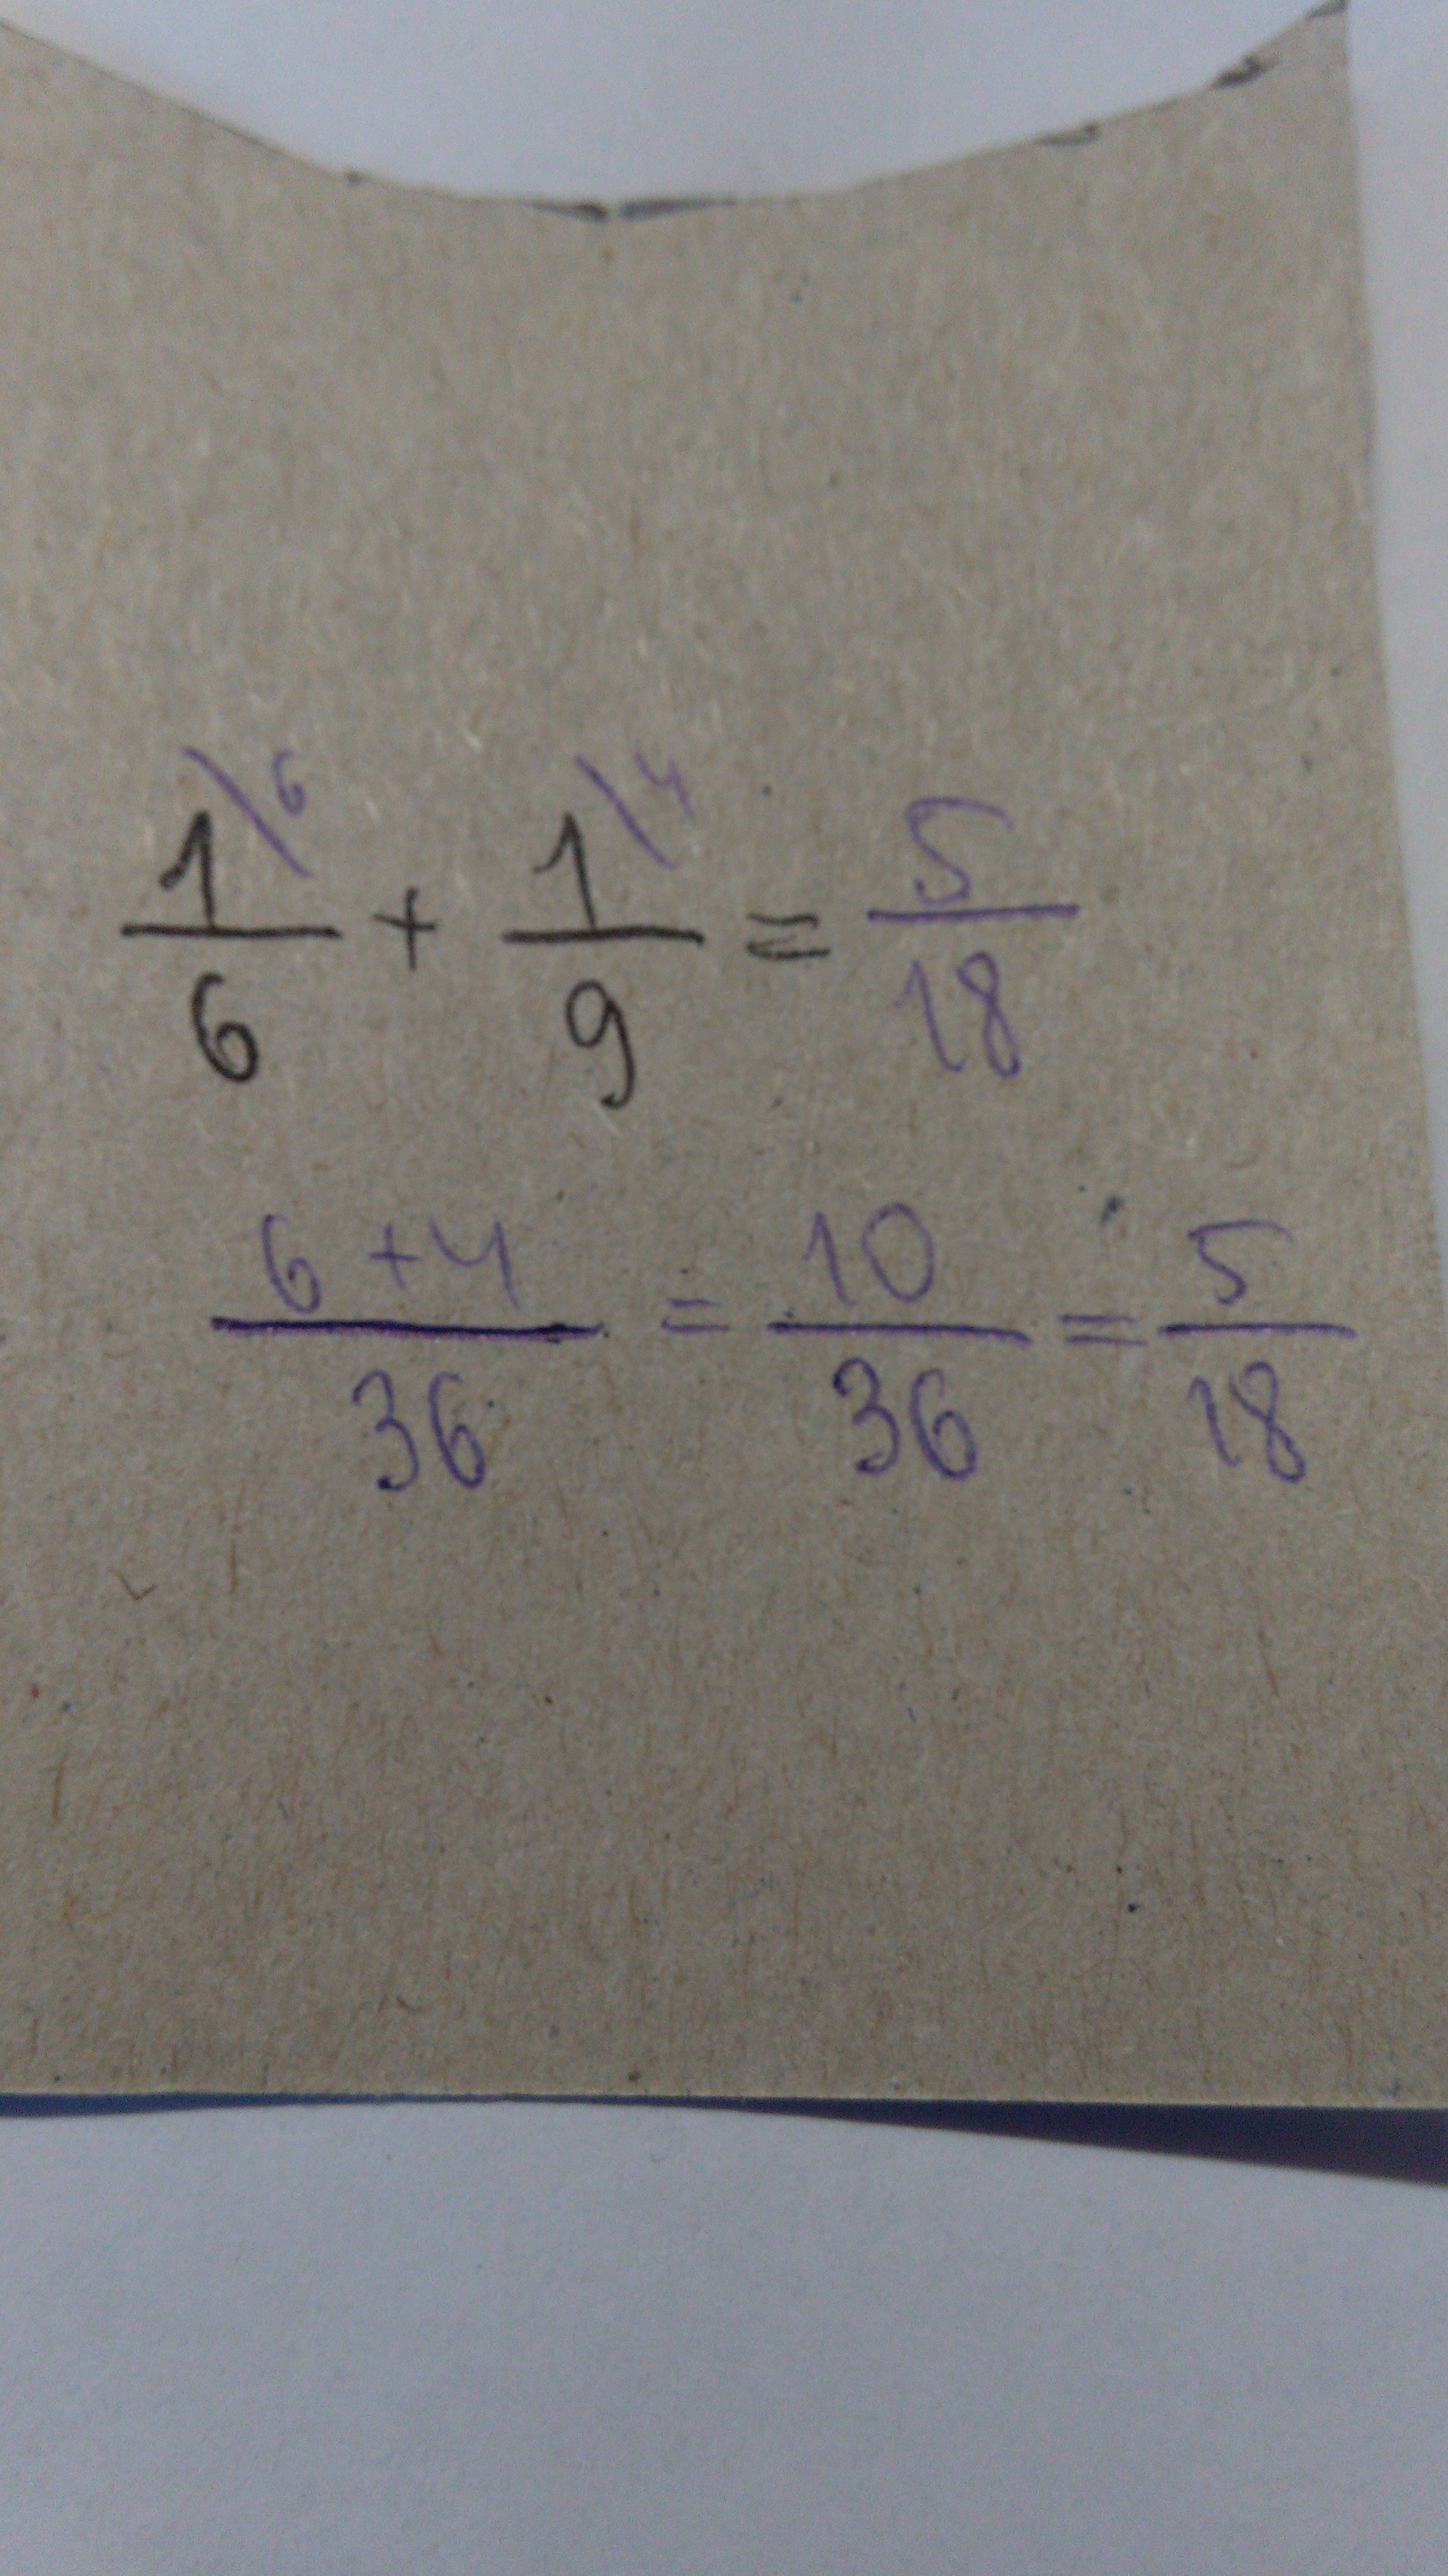 1\6/6 + 1\4/9 = 5/18
6+4/36 = 10/36 = 5/18